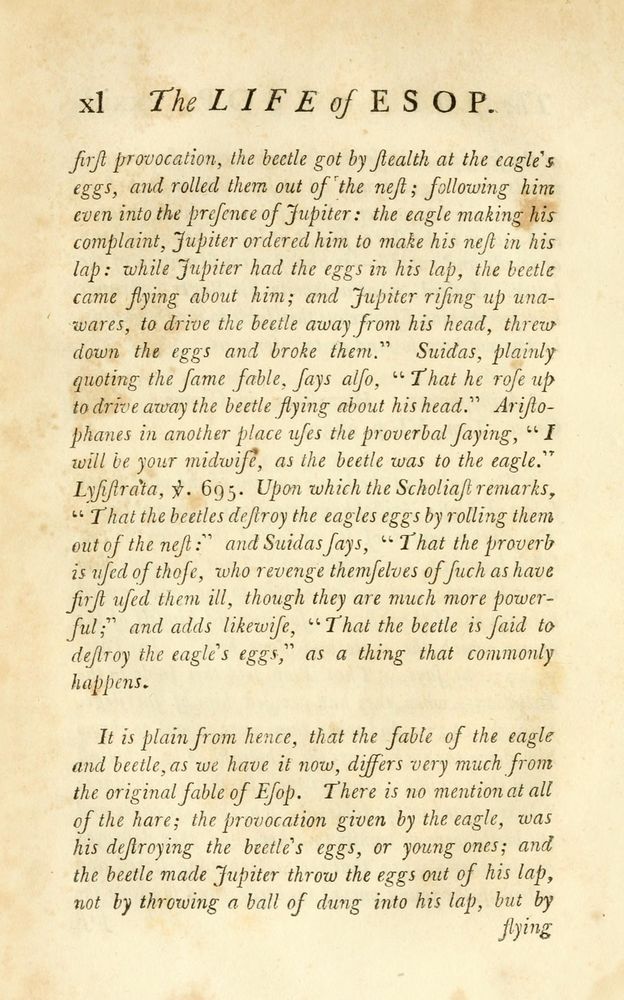 xl The LIFE of ESOP.
firſt provocation, the beetle got by ſtealth at the eagle's
eggs, and rolled them out of the neſt; following him
even into the preſence of Jupiter: the eagle making his
complaint, Jupiter ordered him to make his neſt in his
lap: while Jupiter had the eggs in his lap, the beetle
came flying about him; and Jupiter riſing up una-
wares, to drive the beetle away from his head, threw
down the eggs and broke them." Suidas, plainly
quoting the ſame fable, ſays alſo, "That he roſe up
to drive away the beetle flying about his head." Ariſto-
phanes in another place uſes the proverbal ſaying, "I
will be your midwife, as the beetle was to the eagle."
Lyſiſtrata, ℣. 695. Upon which the Scholiaſt remarks,
"That the beetles deſtroy the eagles eggs by rolling them
out of the neſt:" and Suidas ſays, "That the proverb
is uſed of thoſe, who revenge themſelves of ſuch as have
firſt uſed them ill, though they are much more power-
ful;" and adds likewiſe, "That the beetle is ſaid to
deſtroy the eagle's eggs," as a thing that commonly
happens.
It is plain from hence, that the fable of the eagle
and beetle, as we have it now, differs very much from
the original fable of Eſop. There is no mention at all
of the hare; the provocation given by the eagle, was
his deſtroying the beetle's eggs, or young ones; and
the beetle made Jupiter throw the eggs out of his lap,
not by throwing a ball of dung into his lap, but by
flying